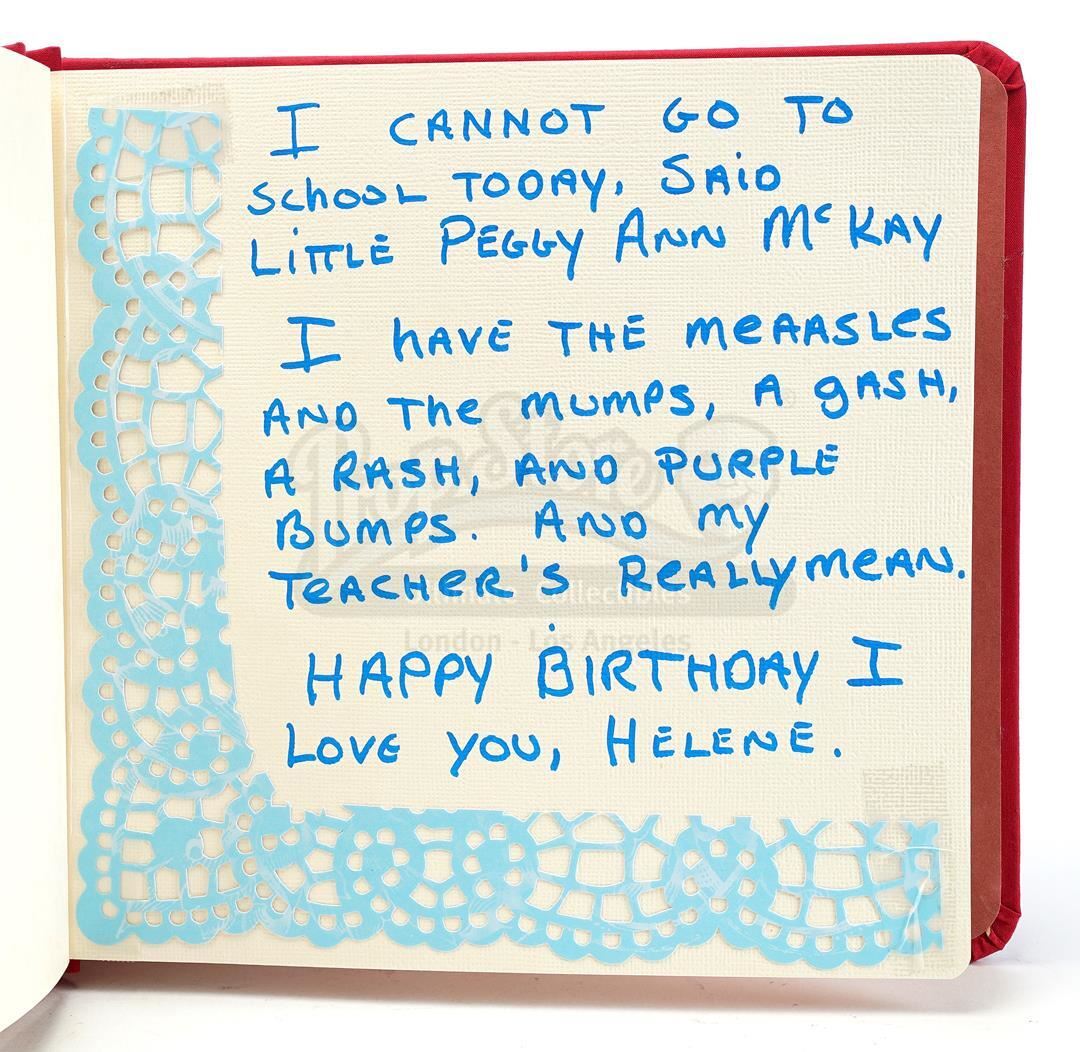 I CANNOT GO TO
SCHOOL TODAY, SAiD
LiTTLE PEGGY ANN McKAY
I hAVE THE meAASLes
AND The mumps, A gASH,
A RASH, AND PURPLE
Bumps. AND my
TeACHeR'S ReALLY meAN.
HAPPY BiRTHDAY I
LOVE YOU, HELENE.
Prop Store
Ultimate Collectibles
London - Los Angeles